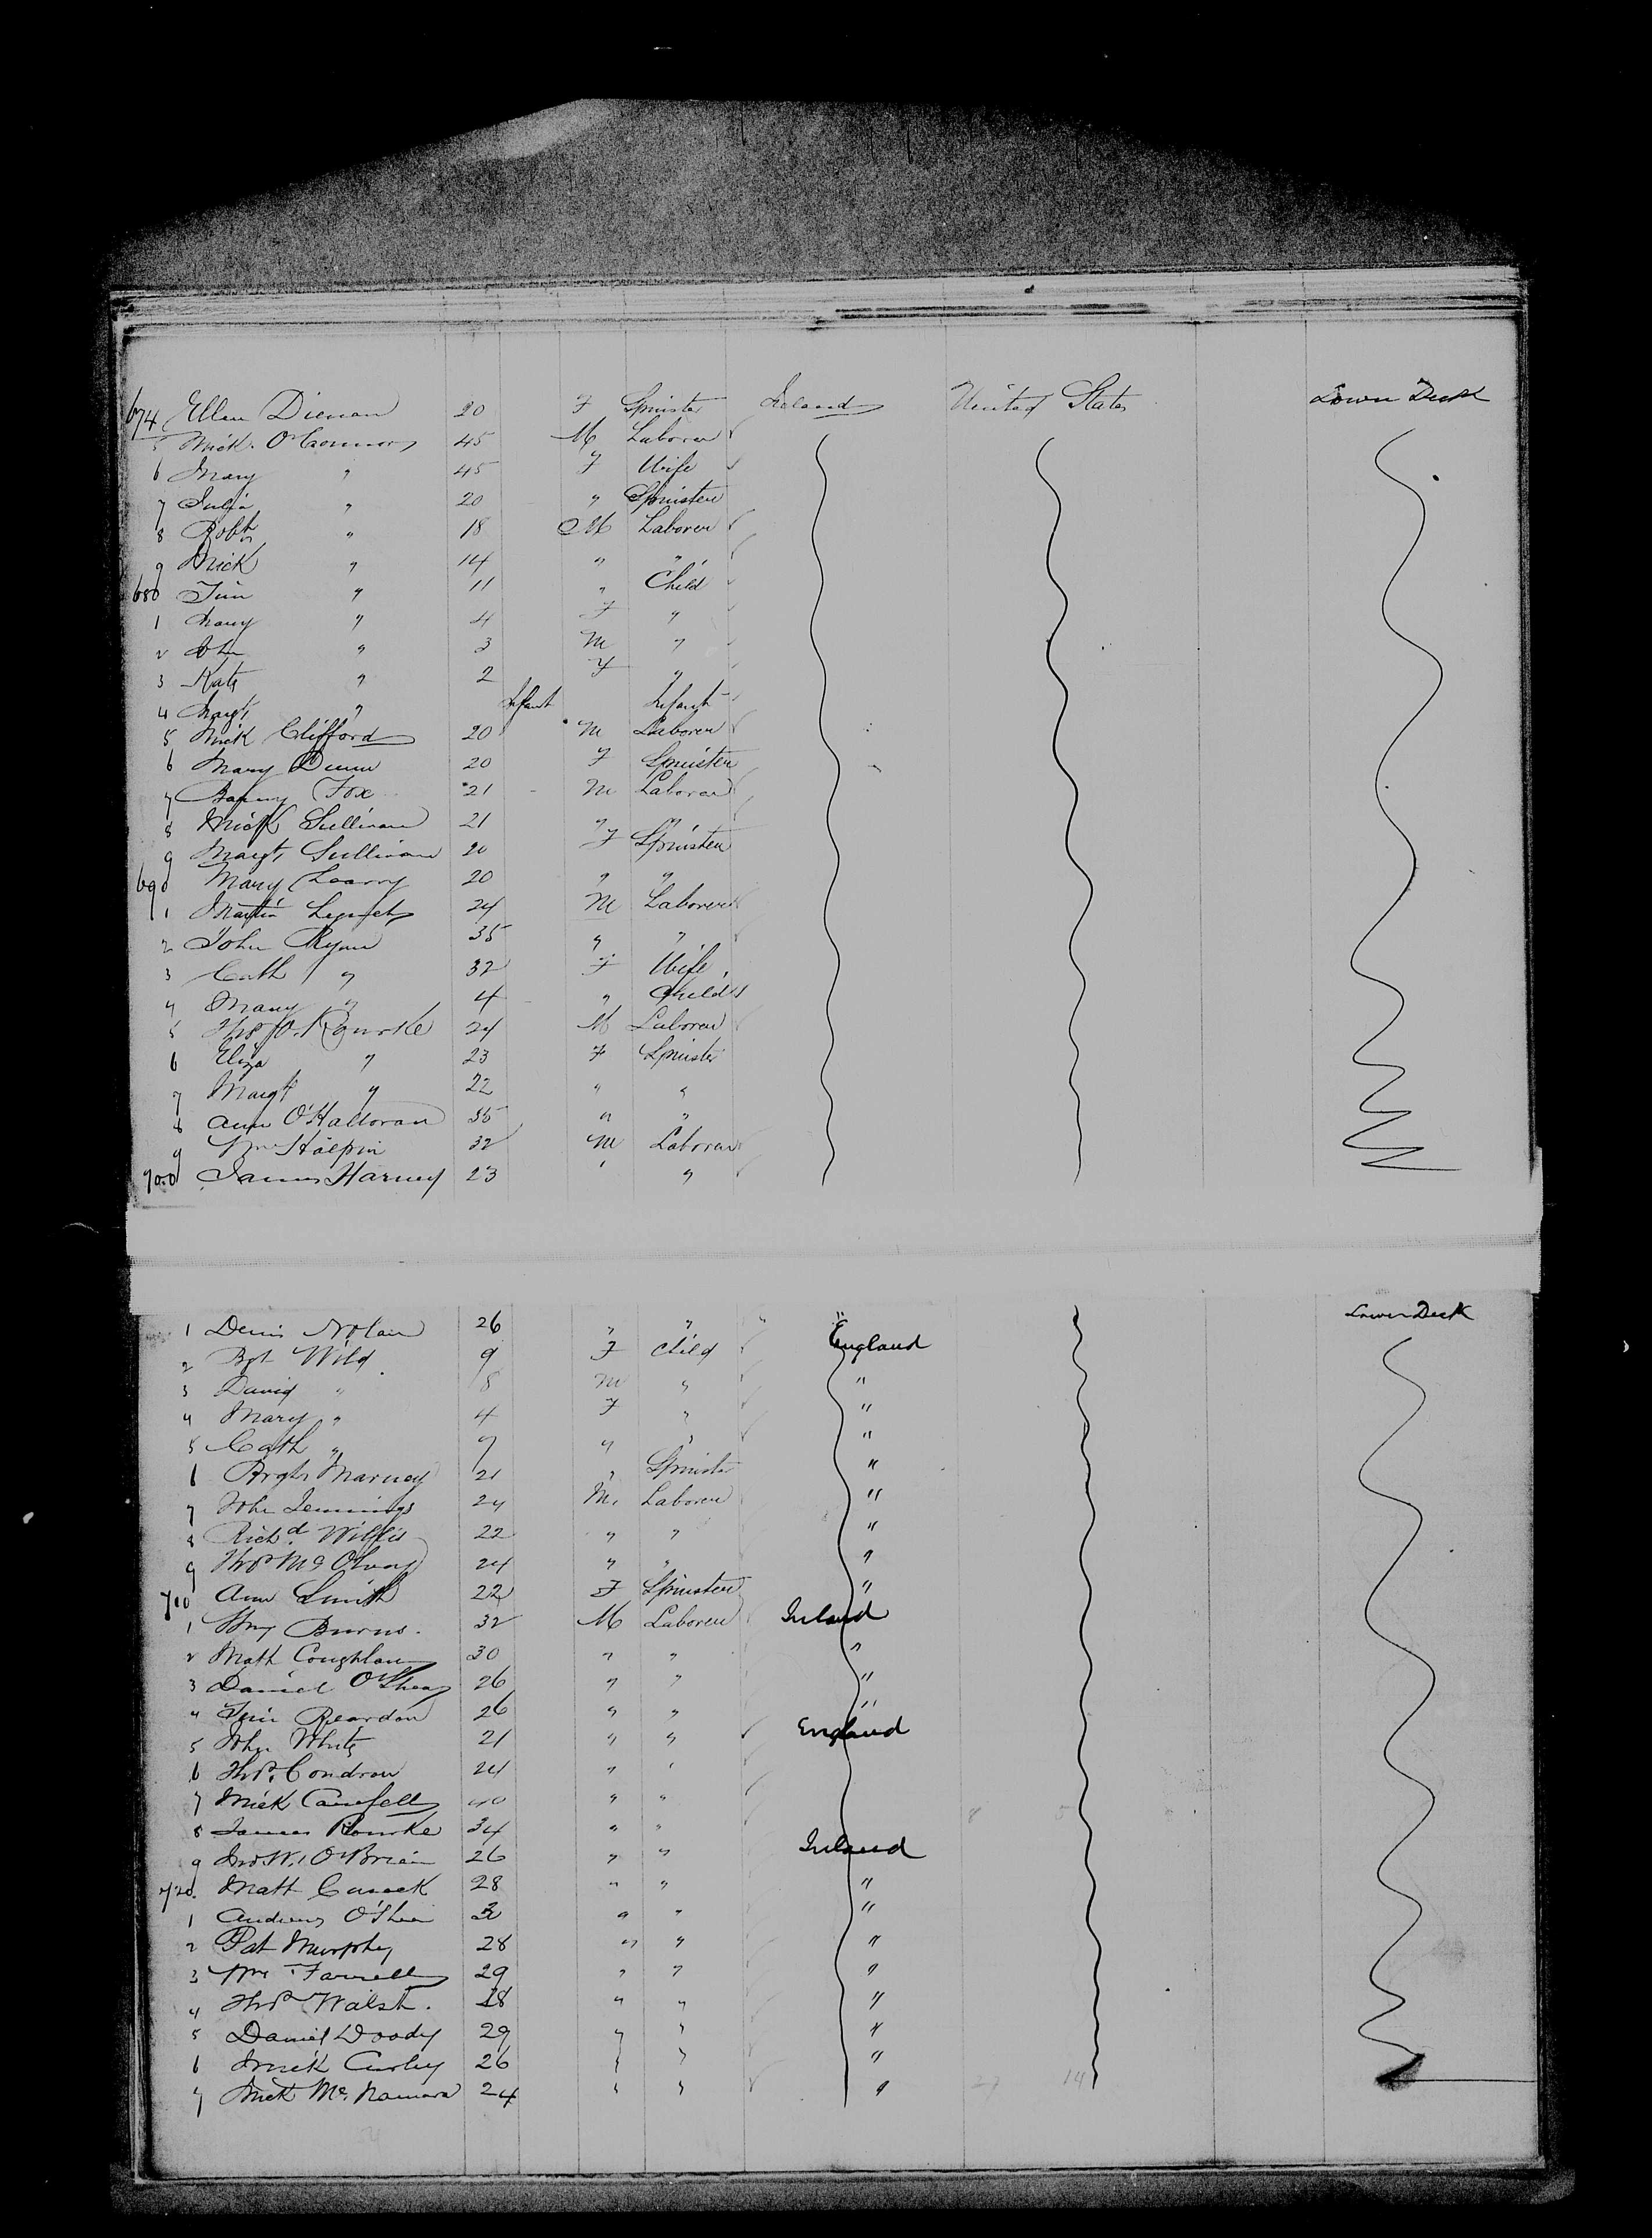 674 Ellen Dienan 20 F Spinster Ireland United States Lower Deck
5 Mick. O'Connor 45 M Laborer
6 Mary " 45 F Wife
7 Julia " 20 " Spinster
8 Robt " 18 M Laborer
9 Mick " 14 " "
680 Tim " 11 " Child
1 Mary " 4 F "
2 John " 3 M "
3 Kate " 2 F "
4 Margt " Infant Infant
5 Mick Clifford 20 M Laborer
6 Mary Dunn 20 F Spinster
7 Barny Fox 21 M Laborer
8 Mick Sullivan 21 " "
9 Margt Sullivan 20 F Spinster
690 Mary Leary 20 " "
1 Martin Lynch 24 M Laborer
2 John Ryan 35 " "
3 Cath " 32 F Wife
4 Mary " 4 " Child
5 Thos O'Rourke 24 M Laborer
6 Eliza " 23 F Spinster
7 Margt " 22 " "
8 Ann O'Halloran 35 " "
9 Wm Halpin 32 M Laborer
700 James Harney 23 ' "
1 Denis Nolan 26 " " " " Lower Deck
2 Bgt Wild 9 F Child England
3 David " 8 M " "
4 Mary " 4 F " "
5 Cath " 7 " " "
6 Brgt Marney 21 " Spinster "
7 John Jennings 24 M. Laborer "
8 Richd. Willis 22 " " "
9 Thos Mc 24 " " "
710 Ann Smith 22 F Spinster "
1 Burns. 32 M Laborer Ireland
2 Math Coughlan 30 " " "
3 Daniel O'Shea 26 " " "
4 Tim Reardon 26 " " "
5 John White 21 " " England
6 Thos. Condron 24 " '
7 Mick 40 " "
8 James Rourke 34 " "
9 O'Brien 26 " " Ireland
720. Matt Cusack 28 " " "
1 Andrew O'Shea " " "
2 Pat Murphy 28 " " "
3 Wm Farrell 29 " " "
4 Thos Walsh. 28 " " "
5 Daniel Doody 29 " " "
6 Mick Curley 26 " " "
7 Mick Mc. Namara 24 " " "